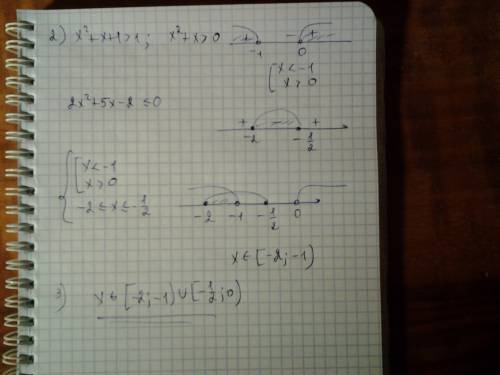 2) x²+x+1>1; x²+x>0
+ - +
-1 0
[ x<-1
x>0
2x²+5x-2≤0
+ - +
-2 -1/2
{ [ x<-1
x>0
-2≤x≤-1/2
-2 -1 -1/2 0
x∈[-2;-1)
3) x∈[-2;-1)∪[-1/2;0)